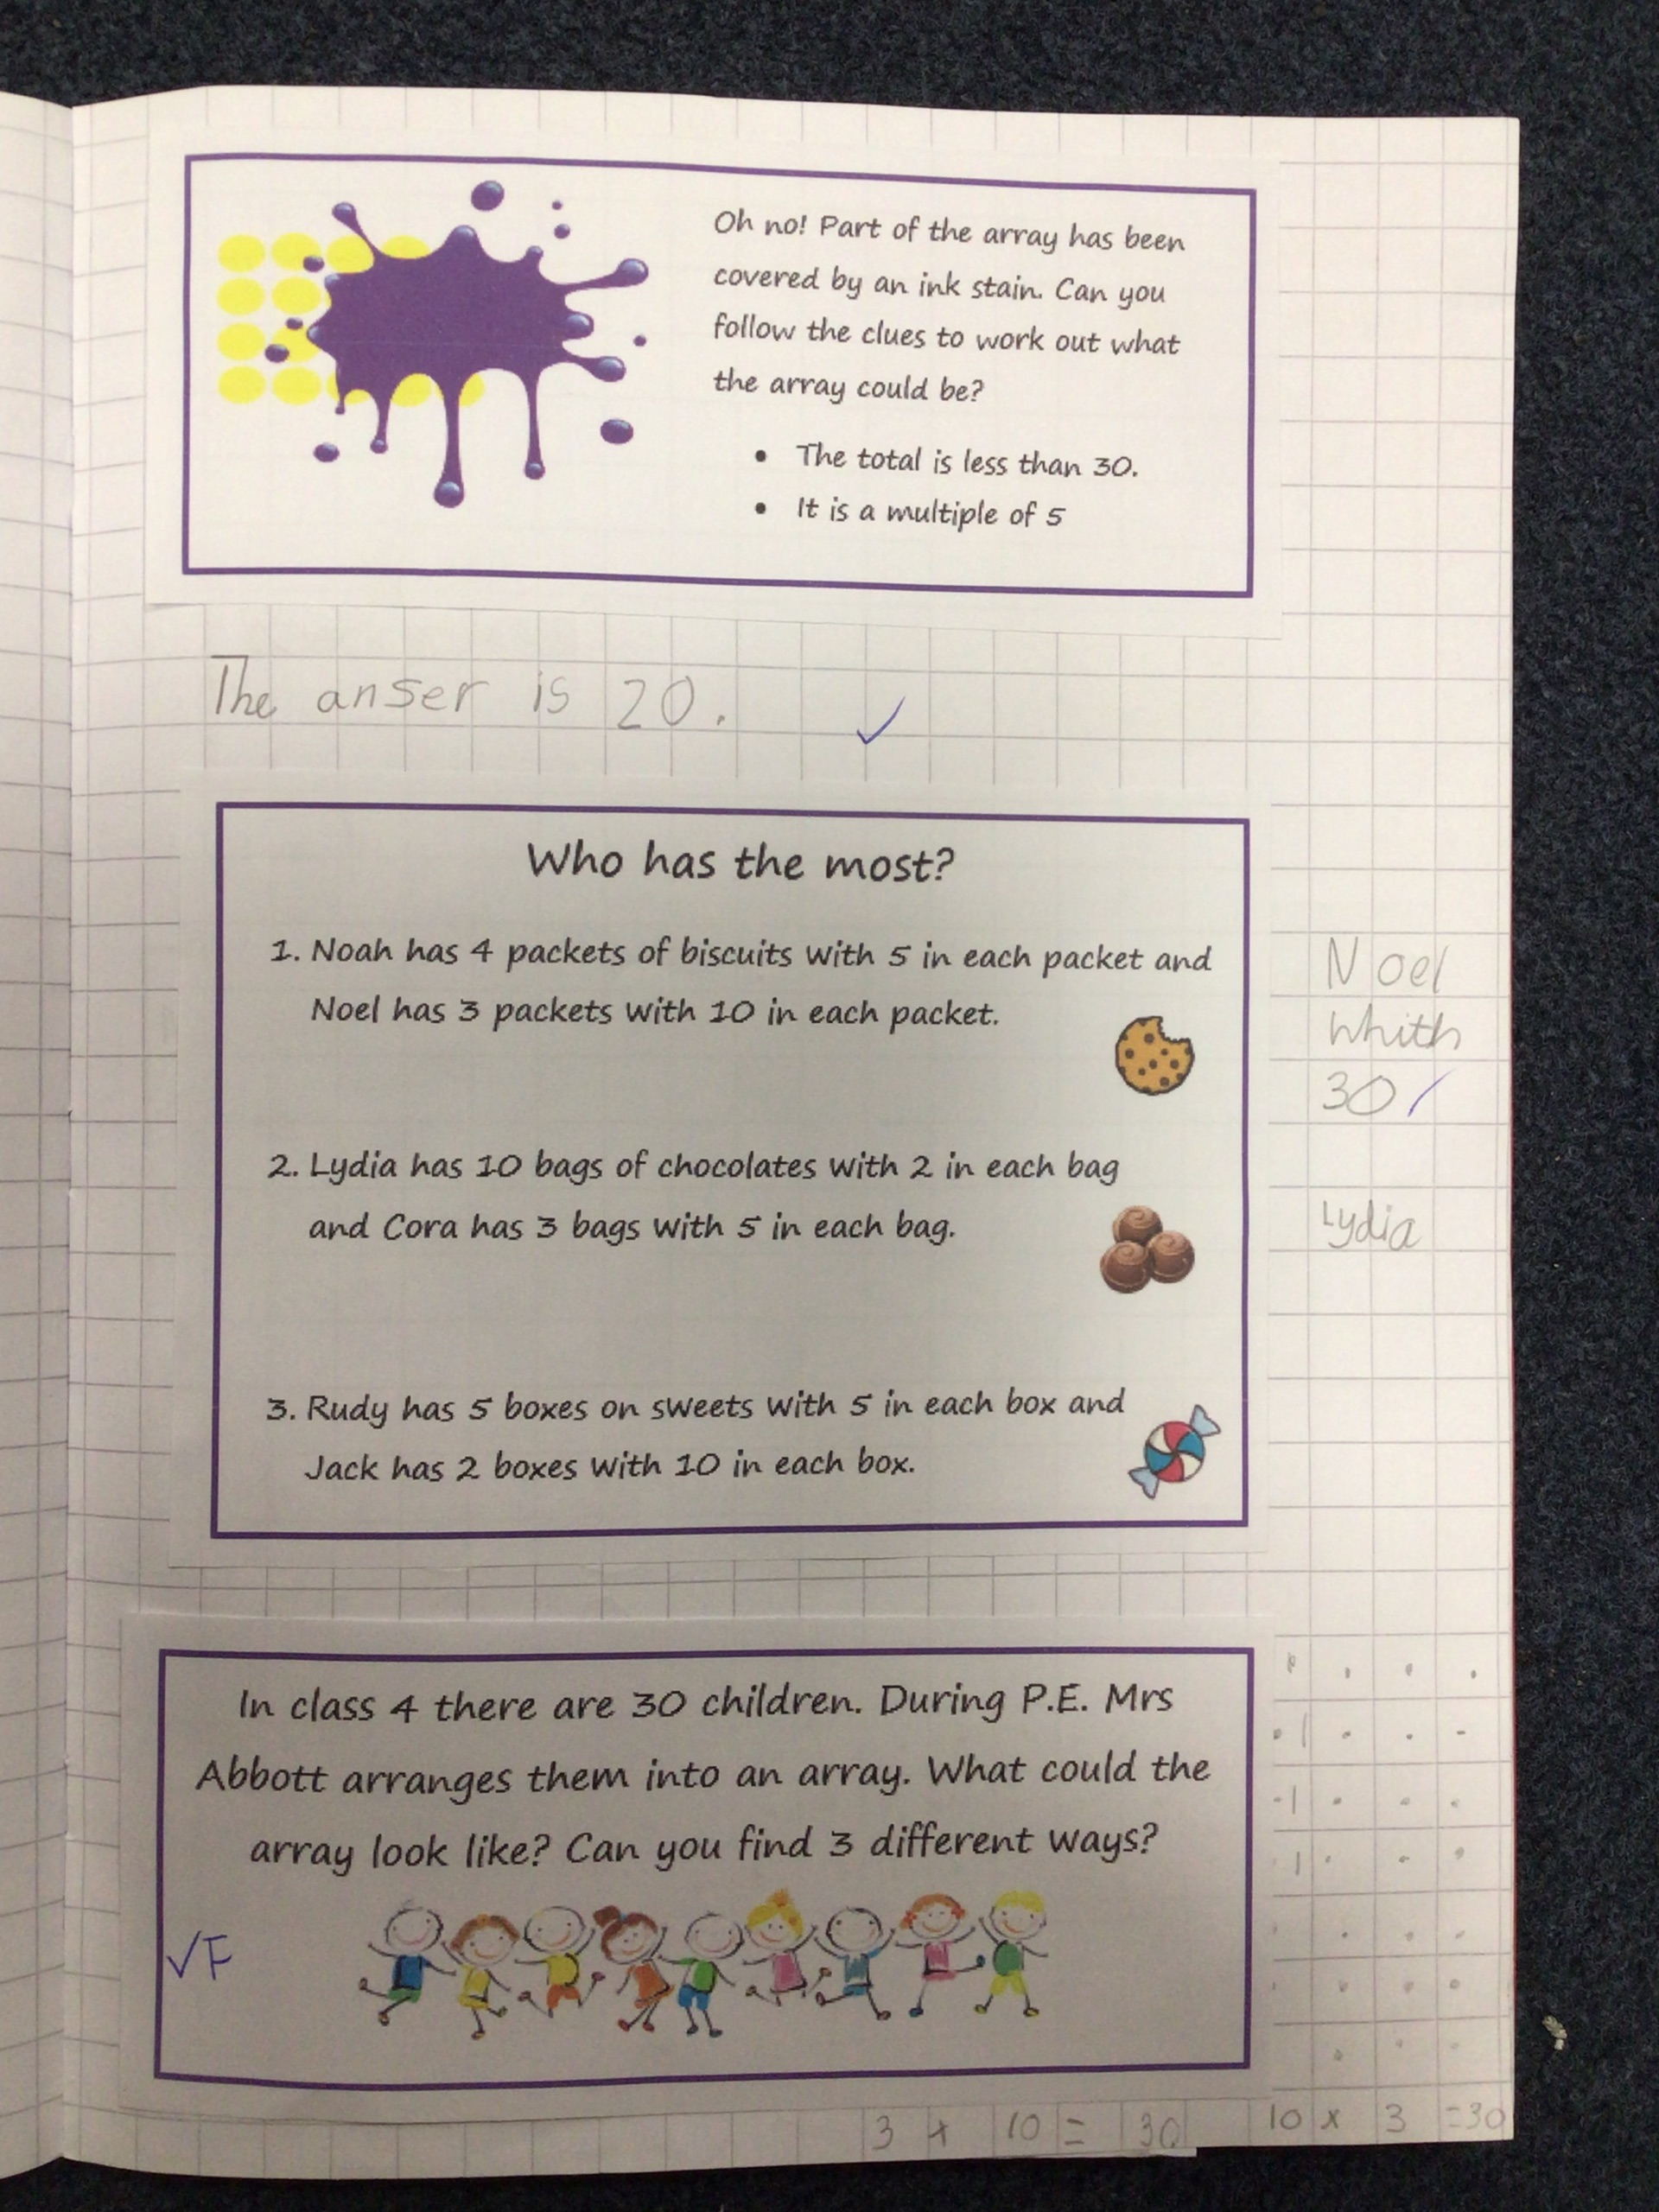 Oh no! Part of the array has been
covered by an ink stain. Can you
follow the clues to work out what
the array could be?
• The total is less than 30.
• It is a multiple of 5
The anser is 20.
Who has the most?
1. Noah has 4 packets of biscuits with 5 in each packet and
Noel has 3 packets with 10 in each packet.
Noel
whith
30
2. Lydia has 10 bags of chocolates with 2 in each bag
and Cora has 3 bags with 5 in each bag.
Lydia
3. Rudy has 5 boxes on sweets with 5 in each box and
Jack has 2 boxes with 10 in each box.
In class 4 there are 30 children. During P.E. Mrs
Abbott arranges them into an array. What could the
array look like? Can you find 3 different ways?
✓F
3 x 10 = 30
10 x 3 =30